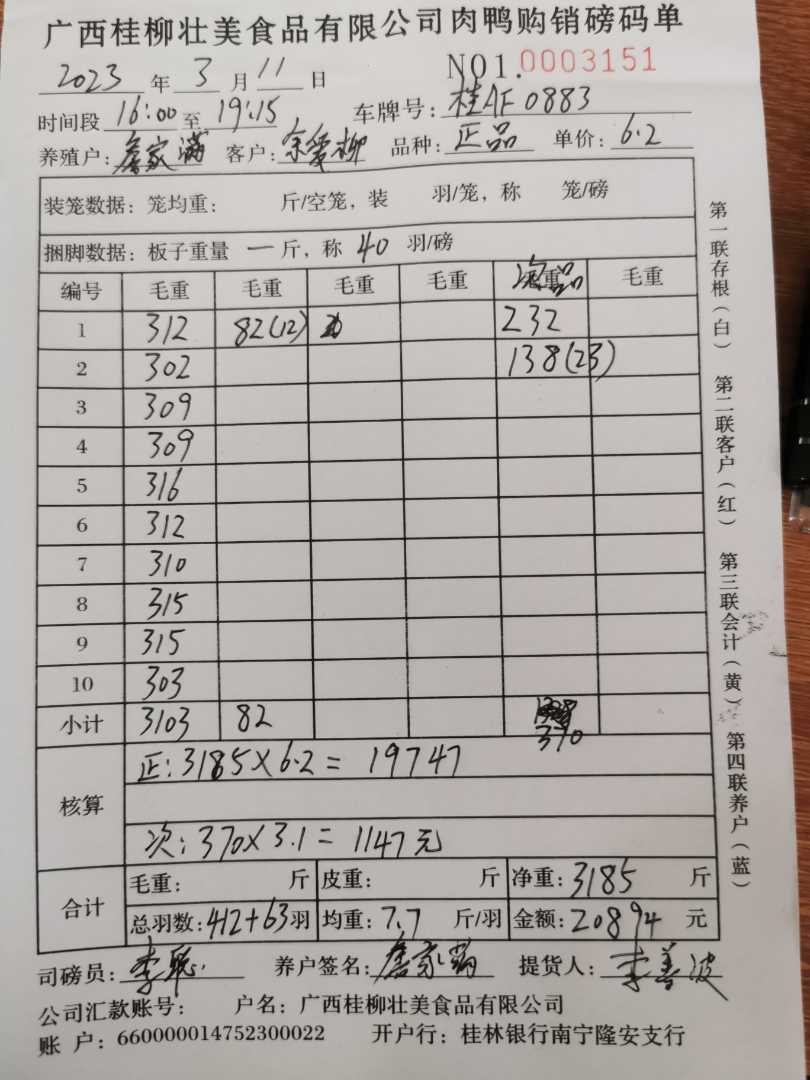 广西桂柳壮美食品有限公司肉鸭购销磅码单
NO1.0003151
2023 年 3 月 11 日
时间段 16:00 至 19:15 车牌号: 桂AF0883
养殖户: 詹家满 客户: 余爱柳 品种: 正品 单价: 6.2
装笼数据: 笼均重: 斤/空笼, 装 羽/笼, 称 笼/磅
捆脚数据: 板子重量 一 斤, 称 40 羽/磅
编号 毛重 毛重 毛重 毛重 次品 毛重
1 312 82(12) 232
2 302 138(23)
3 309
4 309
5 316
6 312
7 310
8 315
9 315
10 303
小计 3103 82 370
核算 正: 3185×6.2= 19747
次: 370×3.1= 1147元
合计 毛重: 斤 皮重: 斤 净重: 3185 斤
总羽数: 412+63 羽 均重: 7.7 斤/羽 金额: 20894 元
司磅员: 李聪 养户签名: 詹家满 提货人: 李善波
公司汇款账号: 户名: 广西桂柳壮美食品有限公司
账 户: 660000014752300022 开户行: 桂林银行南宁隆安支行
第一联存根(白) 第二联客户(红) 第三联会计(黄) 第四联养户(蓝)